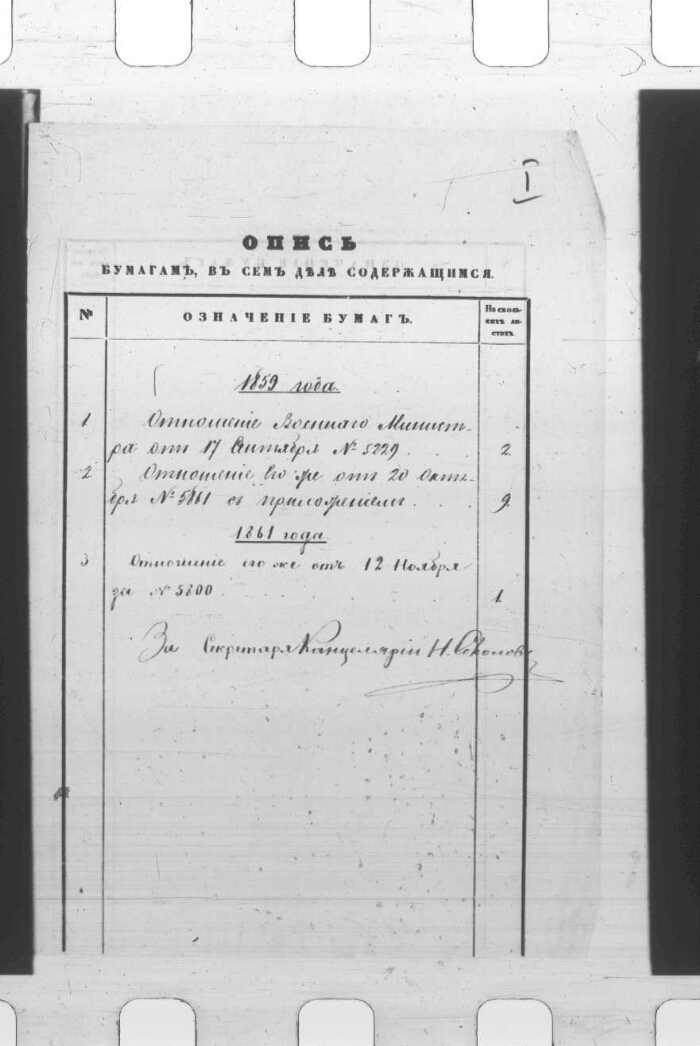 I
ОПИСЬ
БУМАГАМЪ, ВЪ СЕМЪ ДѢЛѢ СОДЕРЖАЩИМСЯ.
№ ОЗНАЧЕНІЕ БУМАГЪ. На сколь-
кихъ ли-
стахъ.
1859 года.
1 Отношеніе Военнаго Минист-
ра отъ 17 Сентября № 5229 . . . . 2
2 Отношеніе Его же отъ 20 Октя-
бря № 5861 съ приложеніемъ . . . 9.
1861 года.
3 Отношеніе его же отъ 12 Ноября
за № 5800 . 1.
За Секретаря Канцеляріи Н. Соколовъ